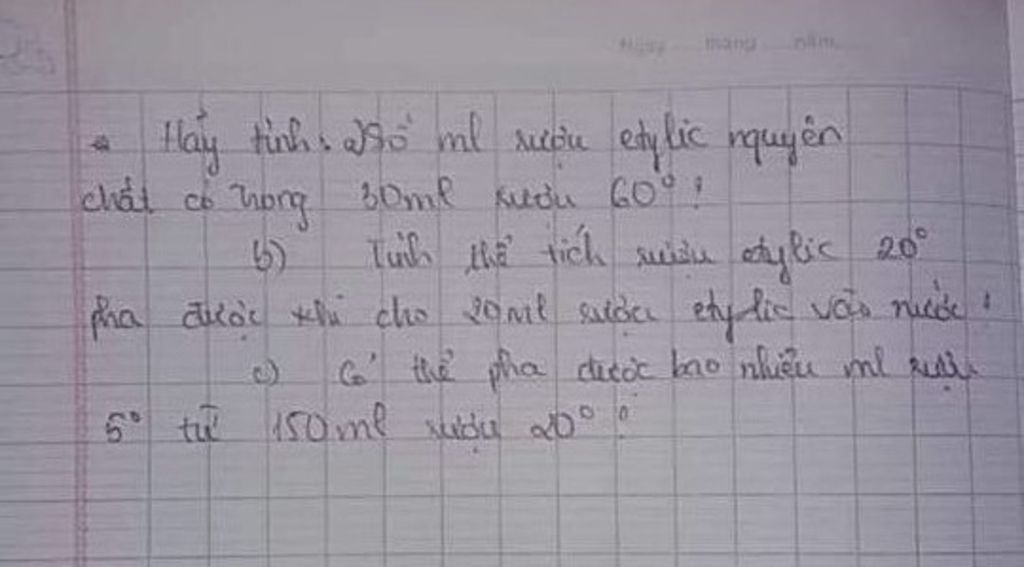 Ngày tháng năm
Hãy tính: a) Số ml rượu etylic nguyên
chất có trong 30ml rượu 60° ?
b) Tính thể tích rượu etylic 20°
pha được khi cho 20ml rượu etylic vào nước ?
c) Có thể pha được bao nhiêu ml rượu
5° từ 150ml rượu 20° ?